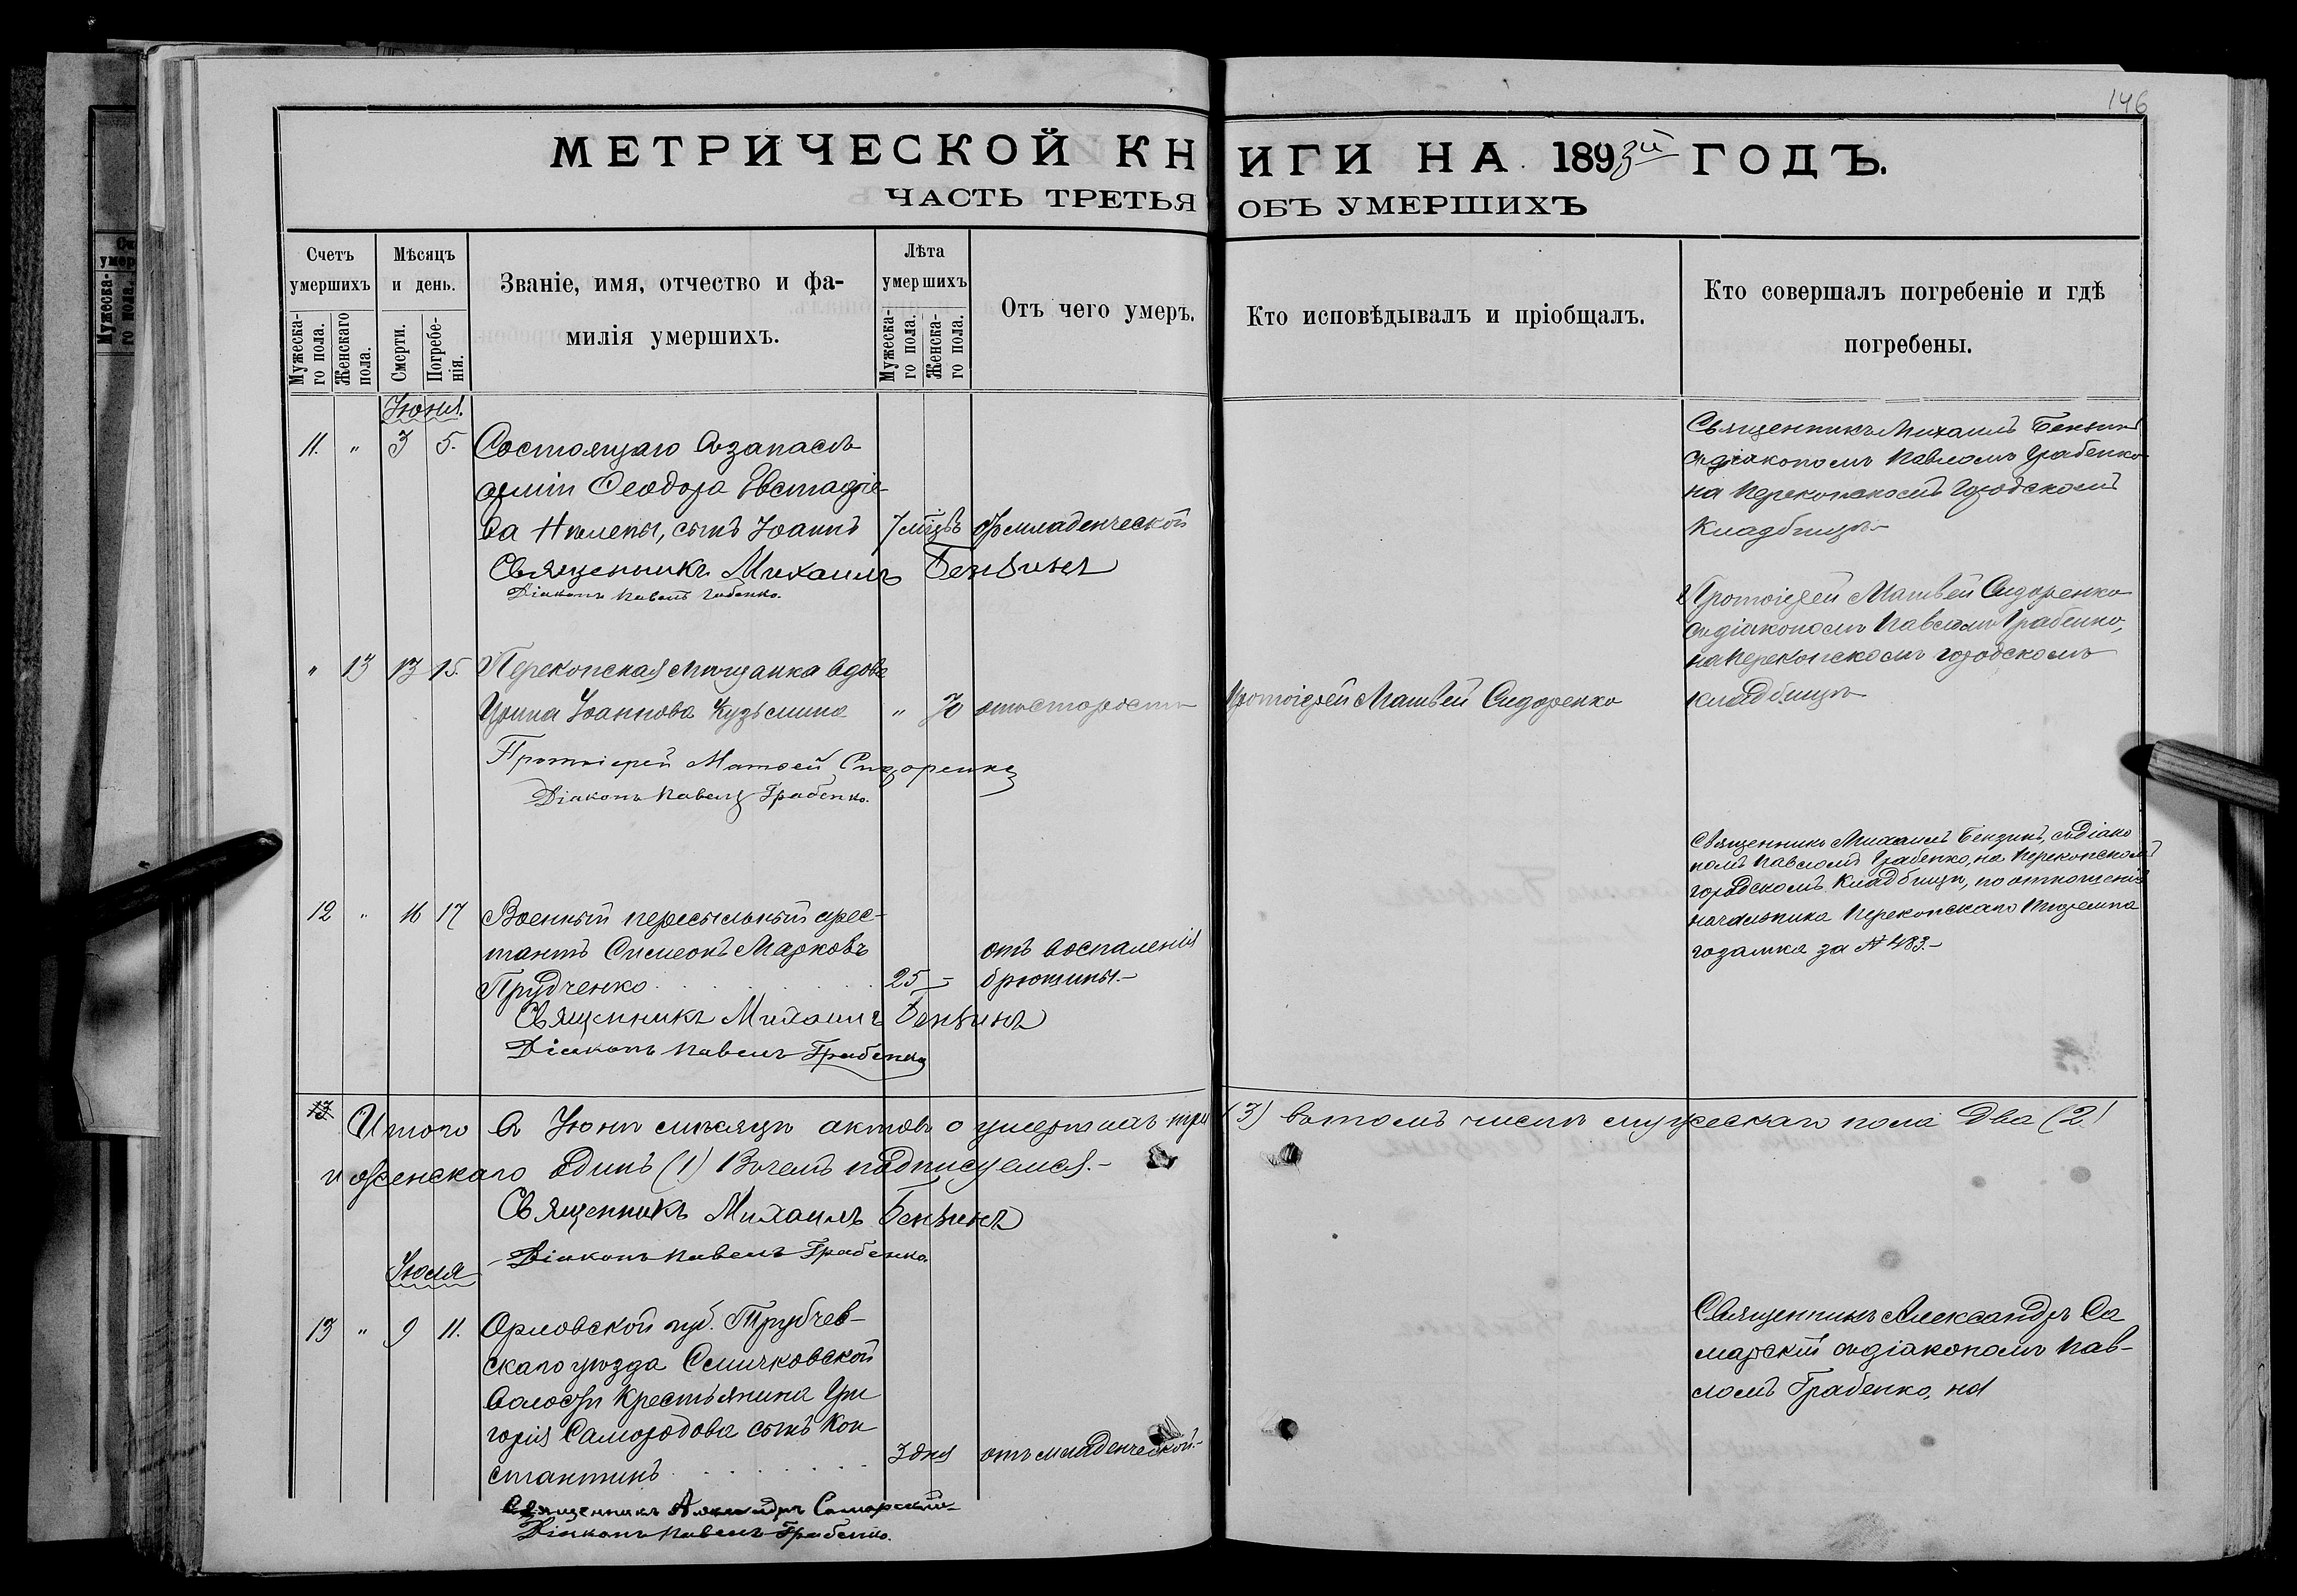 146
МЕТРИЧЕСКОЙ КНИГИ НА 1893й ГОДЪ.
ЧАСТЬ ТРЕТЬЯ ОБЪ УМЕРШИХЪ
Счетъ умершихъ
Мужеска-го пола.
Женскаго пола.
Мѣсяцъ и день.
Смерти.
Погребе-нія.
Званіе, имя, отчество и фа-
милія умершихъ.
Лѣта умершихъ
Мужеска-го пола.
Женска-го пола.
Отъ чего умеръ.
Кто исповѣдывалъ и пріобщалъ.
Кто совершалъ погребеніе и гдѣ
погребены.
Іюня.
11. " 3 5. Состоящаго въ запасѣ
арміи Ѳеодора Евстафіе-
ва сынъ Іоаннъ 7 мѣцвъ отъ младенческой
Священникъ Михаилъ Бензинъ
Діаконъ Павелъ Грабенко.
Священникъ Михаилъ Бензинъ
съ діакономъ Павломъ Грабенко
на Перекопскомъ Городскомъ
Кладбищѣ
" 13 13 15. Перекопская мѣщанка вдова
Ирина Іоаннова Кузьмина " 70 отъ старости
Протоіерей Матвей Сидоренко
Протоіерей Матвей Сидоренко
Діаконъ Павелъ Грабенко.
Протоіерей Матвей Сидоренко
съ діакономъ Павломъ Грабенко,
на Перекопскомъ городскомъ
кладбищѣ
12 " 16 17 Военный пересыльный арес-
тантъ Симеонъ Марковъ
Прудченко 25 – отъ воспаленія
брюшины.–
Священникъ Михаилъ Бензинъ
Діаконъ Павелъ Грабенко
Священникъ Михаилъ Бензинъ, съ діако
номъ Павломъ Грабенко, на Перекопском
городскомъ Кладбищѣ, по отношенію
начальника Перекопскаго тюремна
го замка за № 483.–
13 Итого въ Іюнѣ мѣсяцѣ актовъ о умершихъ три (3) въ томъ числѣ мужескаго пола два (2)
и женскаго одинъ (1) Въ чемъ подписуемся.–
Священникъ Михаилъ Бензинъ
Діаконъ Павелъ Грабенко.
Іюля
13 " 9 11. Орловской губ. Трубчев-
скаго уѣзда Семячковской
Волости Крестьянина Гри
горія Самородова сынъ Кон
стантинъ 3 дня отъ младенческой.–
Священникъ Александръ Самарскій
Діаконъ Павелъ Грабенко.
Священникъ Александръ Са
марскій съ діакономъ Пав-
ломъ Грабенко, на